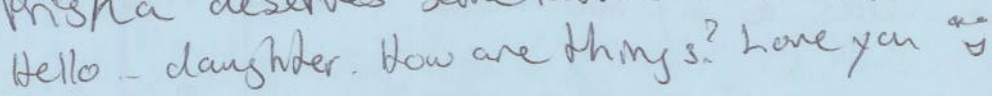 deserves
Hello - daughter. How are things? Love you